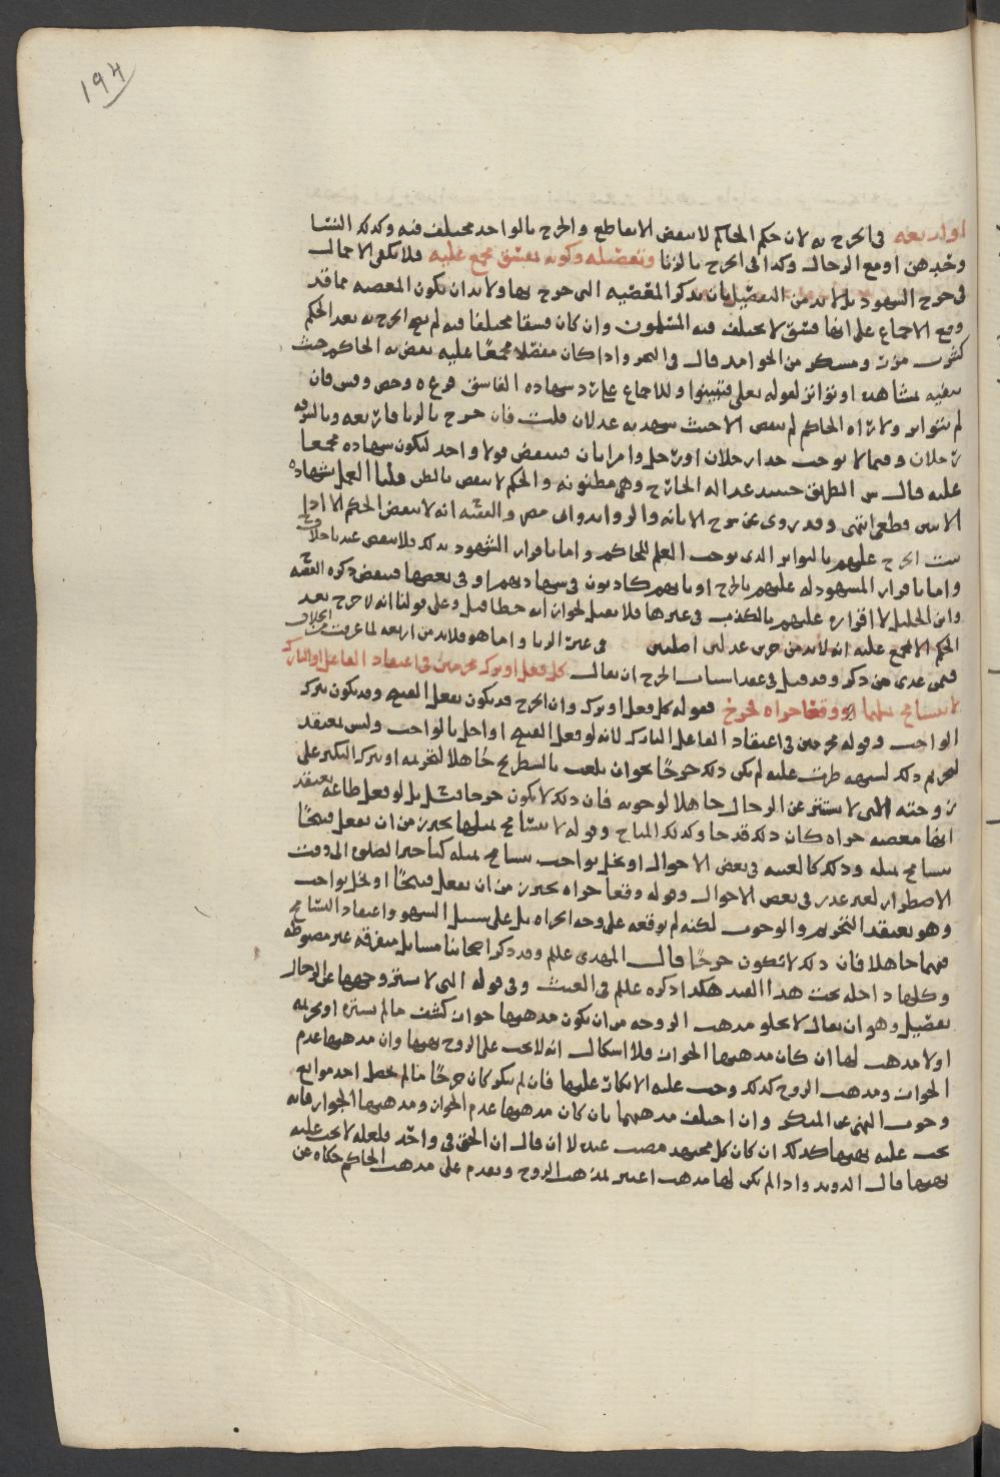 ١٩٤
او اربعه في الجرح به لان حكم الحاكم لا ينقض الا بقاطع والجرح بالواحد مختلف فيه وكذلك النسا
وحدهن او مع الرجال وكذا في الجرح بالزنا وتفصيله وكونه بفسق مجمع عليه فلا يكفي الاجمال
في جرح الشهود بل لا بد من التفصيل بان يذكر المعصيه التي جرح بها ولا بد ان يكون المعصيه مما قد
وقع الاجماع على انها فسق لا يختلف فيه المسلمون وان كان فسقا مختلفا فيه لم يصح الجرح به بعد الحكم
كشرب مزر ومسكر من الجوامد قال في البحر واذا كان مفصلا مجمعا عليه نقض به الحاكم حيث
تيقنه بمشاهده او تواتر لقوله تعلى فتبينوا وللاجماع على رد شهاده الفاسق
لم يتواتر ولا رآه الحاكم لم ينقض الا حيث شهد به عدلان قلت فان جرح بالزنا فاربعه
رجلان وفيما لا يوجب حدا رجلان او رجل وامراتان فينقض قولا واحد لتكون شهاده مجمعا
عليه قال س الطريق حينئذ عداله الجارح وهي مظنونه والحكم لا ينقض بالظن قلنا العمل بشهاده
الاثنين قطعي انتهى وقد روي عن شرح الابانه والزوايد وابي مضر والفقيه انه لا ينقض الحكم الا اذا
ثبت الجرح عليهم بالتواتر الذي يوجب العلم للحاكم واما باقرار الشهود بذلك فلا ينقض عندنا خلاف
واما باقرار المشهود له عليهم بالجرح او بانهم كاذبون في شهادتهم او في بعضها فينقض ذكره الفقيه ح
وابن الخليل لا اقراره عليهم بالكذب في غيرها فلا يقبل لجواز انه خطا قيل وعلى قولنا انه لا جرح بعد
الحكم الا بمجمع عليه انه لا بد من جرح عدلين اصليين في غير الزنا واما هو فلا بد من اربعه لما عرفت من الخلاف
فيمن عدى من ذكر وقد قيل في عقد اسباب الجرح ان يقال كل فعل او ترك محرمين في اعتقاد الفاعل او التارك
لا يتسامح بمثلهما وقعا جراه فجرح فقوله كل فعل او ترك وان الجرح قد يكون بفعل القبيح وقد يكون بترك
الواجب وقوله محرمين في اعتقاد الفاعل التارك لانه لو فعل القبيح او اخل بالواجب وليس بمعتقد
لتحريم ذلك لشبهه طرت عليه لم يكن ذلك جرحا نحو ان يلعب بالشطرنج جاهلا لتحريمه او يترك النكير على
زوجته التي لا تستتر عن الرجال جاهلا لوجوبه فان ذلك لا يكون جرحا في مثله بل لو فعل طاعه يعتقد
انها معصيه جراه كان ذلك قدحا وكذلك المباح وقوله لا يتسامح بمثلها يحترز من ان يفعل قبيحا
يتسامح بمثله وذلك كالغيبه في بعض الاحوال او يخل بواجب يتسامح بمثله كتاخير الصلوه الى وقت
الاضطرار لغير عذر في بعض الاحوال وقوله وقعا جراه يحترز من ان يفعل قبيحا او يخل بواجب
وهو يعتقد التحريم والوجوب لكنه لم يوقعه على وجه الجراه بل على سبيل السهو واعتقاد التسامح
فيهما جاهلا فان ذلك لا يكون جرحا قال المهدي علم وقد ذكر اصحابنا مسايل متفرقه غير مضبوطه
وكلها داخله تحت هذا العقد هكذا ذكره علم في الغيث وفي قوله التي لا تستر وجهها عن الرجال
تفصيل وهو ان يقال لا يخلو مذهب الزوجه من ان يكون مذهبها جواز كشف ما لم تستره او تحريمه
اولا مذهب لها ان كان مذهبها الجواز فلا اشكال انه لا يجب على الزوج نهيها وان مذهبها عدم
الجواز ومذهب الزوج كذلك وجب عليه الانكار عليها فان لم ينكر كان جرحا ما لم يحصل احد موانع
وجوب النهي عن المنكر وان اختلف مذهبهما بان كان مذهبها عدم الجواز ومذهبه الجواز فانه
يجب عليه نهيها كذلك ان كان كل مجتهد مصيب عنده لا ان قال ان الحق في واحد فلعله لا يجب عليه
نهيها قال الدويد واذا لم يكن لها مذهب اعتبر بمذهب الزوج ويقدم على مذهب الحاكم حكاه عن